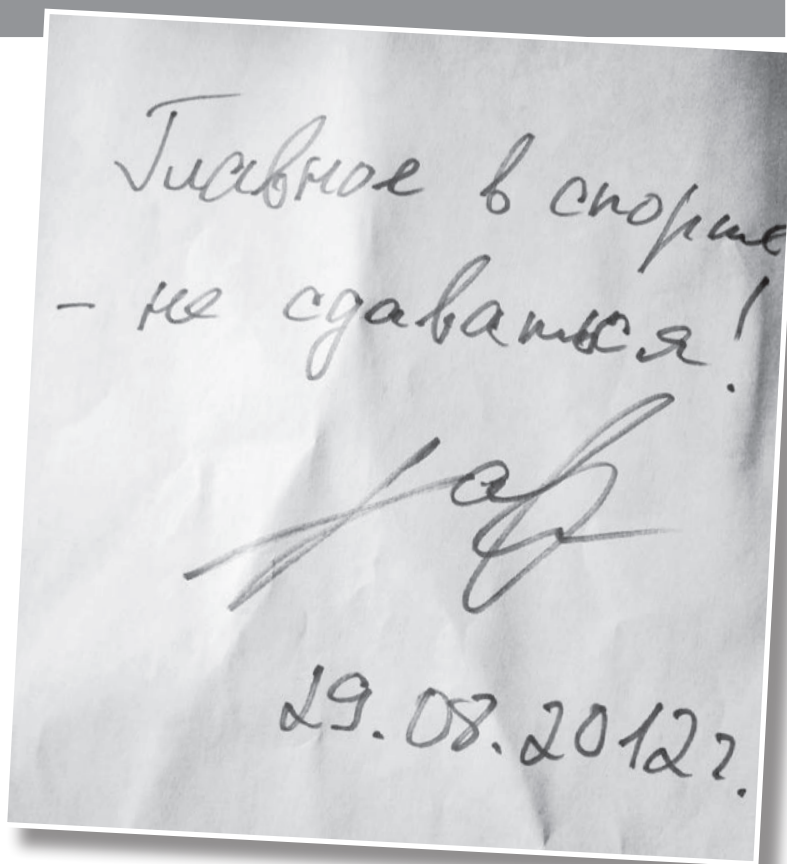 Главное в спорте
- не сдаваться!
29.08.2012 г.